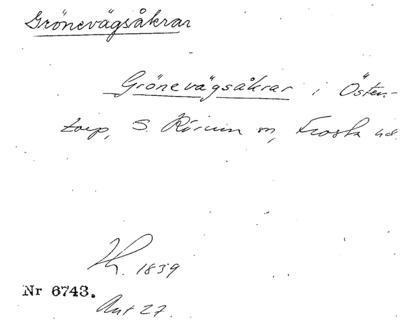 Grönevägsåkrar
Grönevägsåkrar i Östen-
torp, S. Rörum sn, Frosta hd.
1839
Nr 6743.
Ant 27.